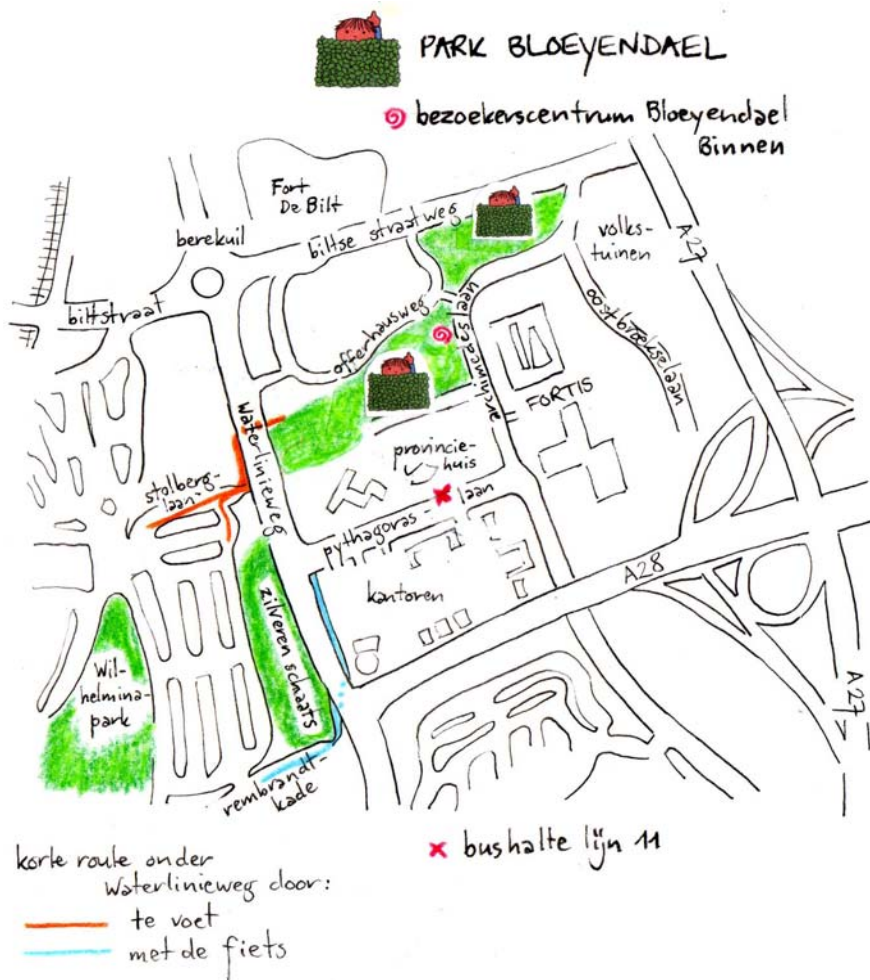 PARK BLOEYENDAEL
bezoekerscentrum Bloeyendael
Binnen
Fort
De Bilt
berekuil
biltse straatweg
volks-
tuinen
A27
biltstraat
offerhausweg
archimedeslaan
oostbroekselaan
FORTIS
Waterlinieweg
provincie-
huis
stolberg-
laan
pythagoras-
laan
A28
kantoren
zilveren schaats
Wil-
helmina-
park
A27
rembrandt-
kade
bushalte lijn 11
korte route onder
Waterlinieweg door:
te voet
met de fiets